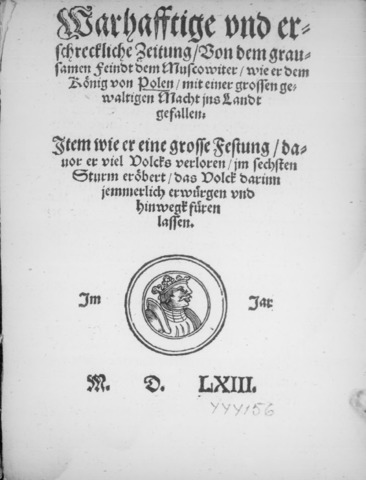 Warhafftige vnd er-
schreckliche Zeitung/Von dem grau-
samen Feindt dem Muscowiter/wie er dem
König von Polen/mit einer grossen ge-
waltigen Macht jns Landt
gefallen.
Item wie er eine grosse Festung/da-
uor er viel Volcks verloren/jm sechsten
Sturm eröbert/das Volck darinn
jemmerlich erwürgen vnd
hinwegk füren
lassen.
Im Jar
M. D. LXIII.
YYY156